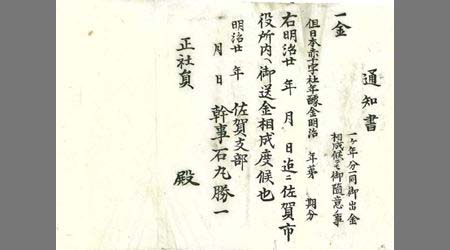 通知書
一ヶ年分一同御出金
相成候モ御随意ノ事
一金
但日本赤十字社年醵金明治　年第　期分
右明治廿　年　月　日迄ニ佐賀市
役所内ヘ御送金相成度候也
明治廿　年　月　日
佐賀支部
幹事石丸勝一
正社員　殿